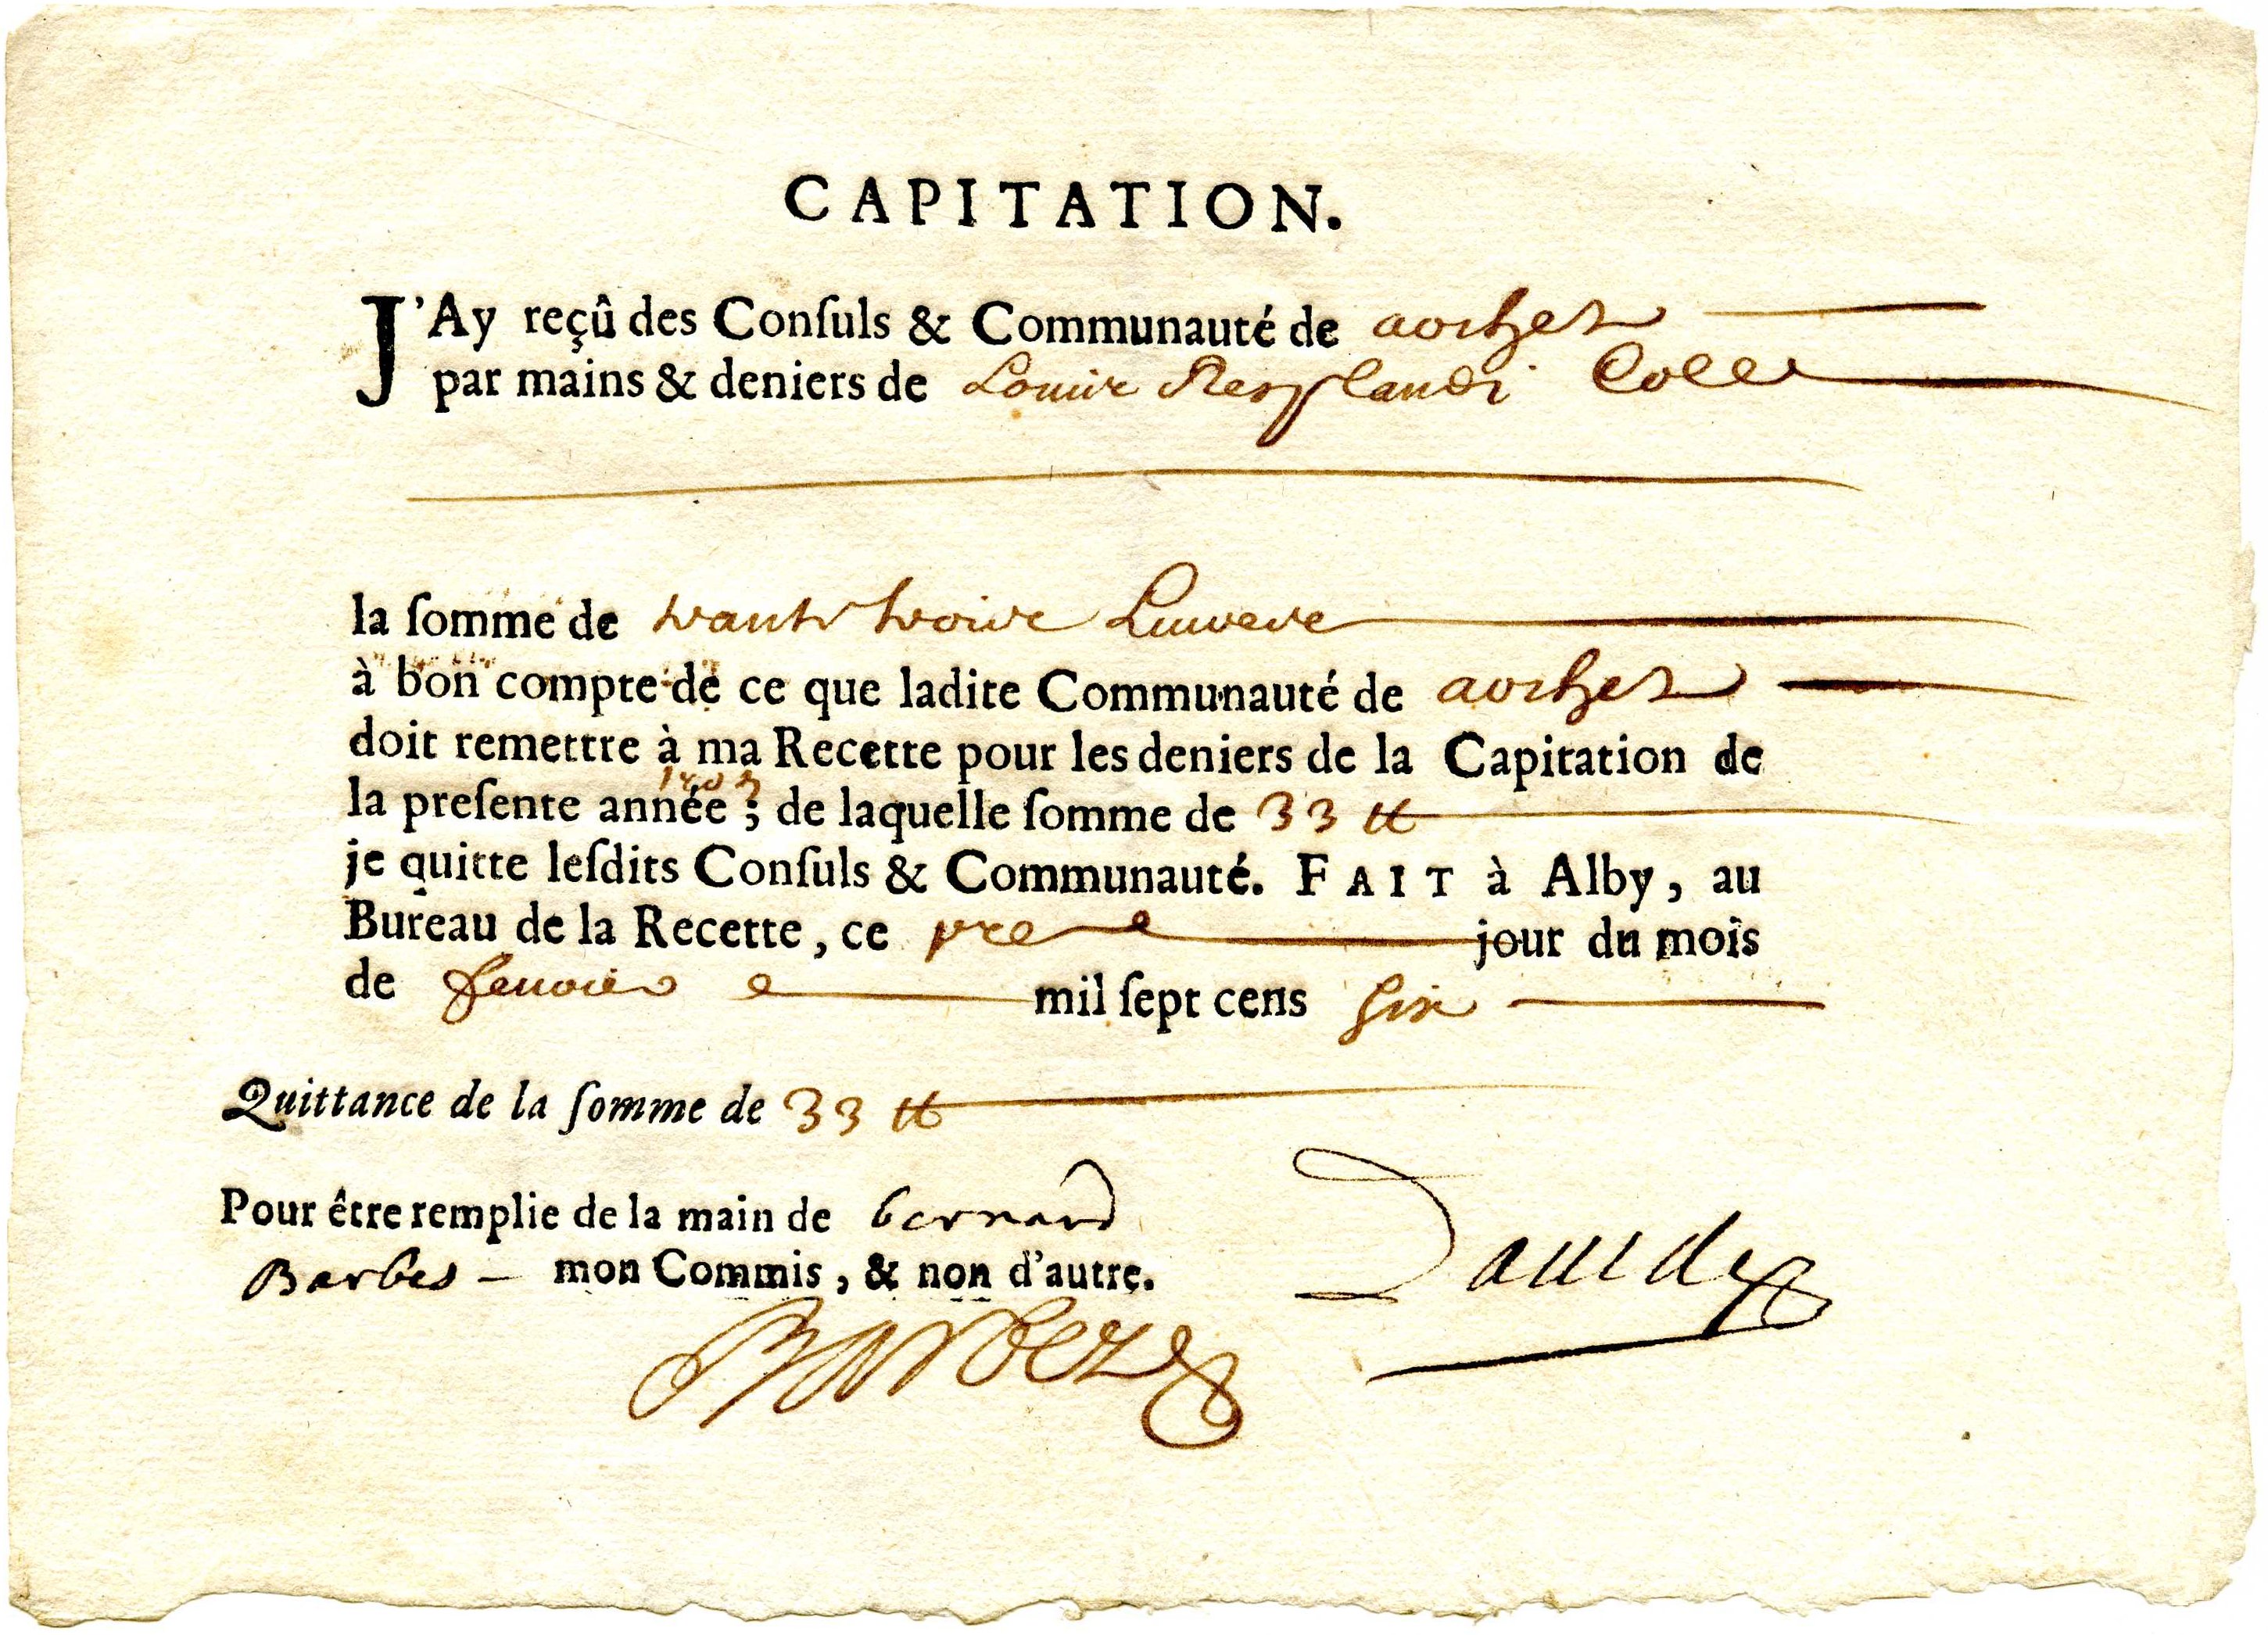 CAPITATION.
J'Ay reçû des Conſuls & Communauté de
par mains & deniers de Louis Resplandi Colle
la ſomme de trante troise Liuvres
à bon compte de ce que ladite Communauté de
doit remettre à ma Recette pour les deniers de la Capitation de
la preſente année ; de laquelle ſomme de 33 ₶
je quitte leſdits Conſuls & Communauté. FAIT à Alby, au
Bureau de la Recette, ce jour du mois
de mil ſept cens six
Quittance de la ſomme de 33 ₶
Pour être remplie de la main de bernard
Barbes – mon Commis, & non d'autre.
Dauide
Barbeze